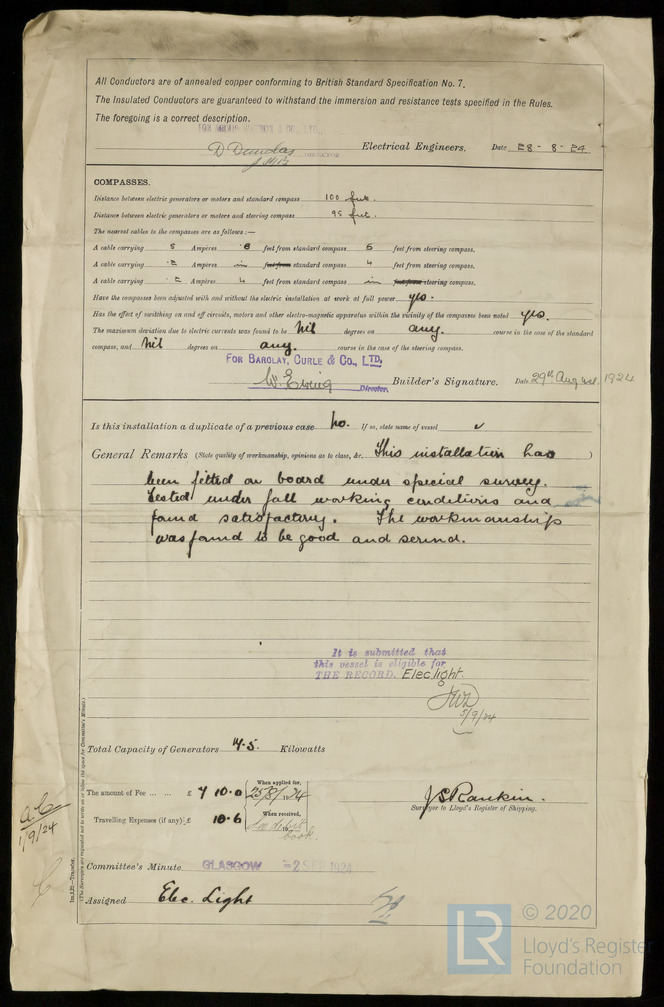 All Conductors are of annealed copper conforming to British Standard Specification No. 7.
The Insulated Conductors are guaranteed to withstand the immersion and resistance tests specified in the Rules.
The foregoing is a correct description.
D Dundas Electrical Engineers. Date 28-8-24
DIRECTOR
COMPASSES.
Distance between electric generators or motors and standard compass 100 feet.
Distance between electric generators or motors and steering compass 95 feet.
The nearest cables to the compasses are as follows:—
A cable carrying 5 Ampères 8 feet from standard compass 6 feet from steering compass.
A cable carrying ·2 Ampères in feet from standard compass 4 feet from steering compass.
A cable carrying ·2 Ampères 4 feet from standard compass in feet from steering compass.
Have the compasses been adjusted with and without the electric installation at work at full power yes.
Has the effect of switching on and off circuits, motors and other electro-magnetic apparatus within the vicinity of the compasses been noted yes.
The maximum deviation due to electric currents was found to be Nil degrees on any. course in the case of the standard
compass, and Nil degrees on any. course in the case of the steering compass.
FOR BARCLAY, CURLE & CO., LTD.
W. Ewing Director. Builder's Signature. Date 29th August 1924
Is this installation a duplicate of a previous case No. If so, state name of vessel
General Remarks (State quality of workmanship, opinions as to class, &c. This installation has )
been fitted on board under special survey.
Tested under full working conditions and
found satisfactory. The workmanship
was found to be good and sound.
It is submitted that
this vessel is eligible for
THE RECORD. Elec light.
5/9/24
Total Capacity of Generators 74.5 Kilowatts
The amount of Fee ... ... £ 7 10.0
When applied for,
25/8/24
Travelling Expenses (if any) £ 10.6
When received,
book.
J S Rankin.
Surveyor to Lloyd's Register of Shipping.
1/9/24
(The Surveyors are requested not to write on or below the space for Committee's Minute.)
Committee's Minute GLASGOW -2 SEP 1924
Assigned Elec. Light
LR
© 2020
Lloyd's Register
Foundation